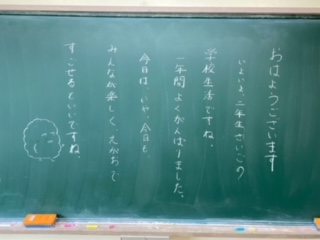 おはようございます
いよいよ、二年生さいごの
学校生活ですね。
一年間よくがんばりました。
今日は いや、今日も
みんなが楽しく、えがおで
すごせるといいですね